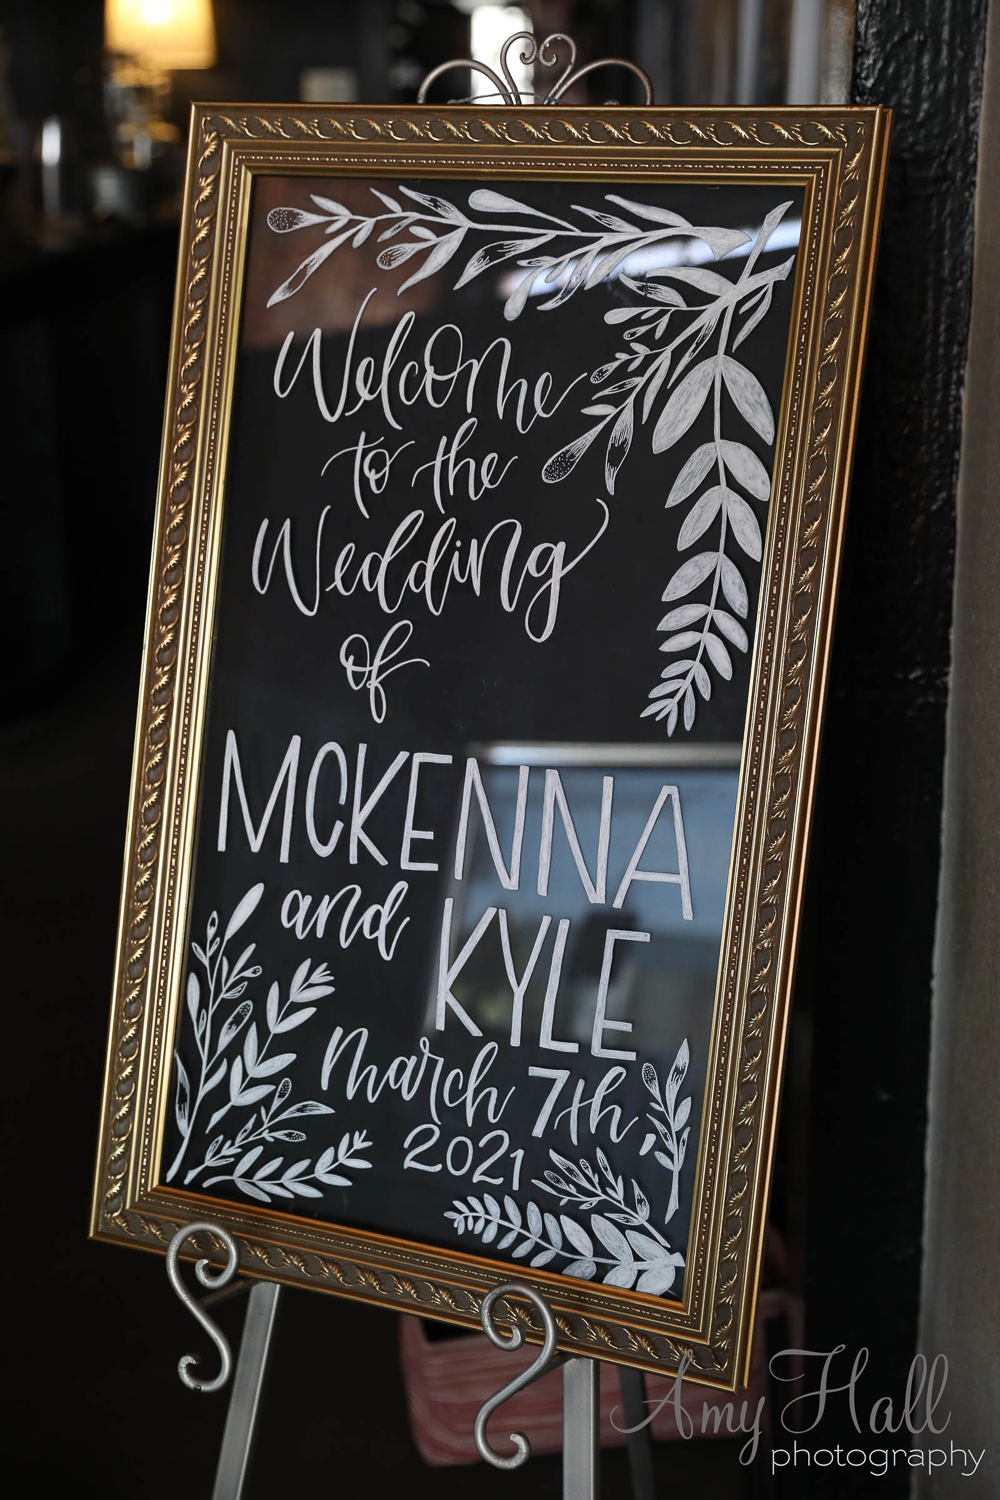 Welcome
to the
Wedding
of
MCKENNA
and
KYLE
march 7th,
2021
Amy Hall
photography